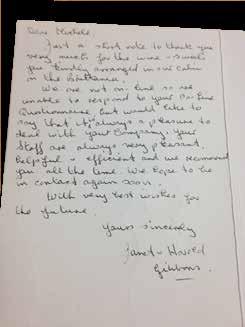 Dear Michele
Just a short note to thank you
very much for the wine + sweets
you kindly arranged in our cabin
on the Brittania.
We are not on line so are
unable to respond to your On-line
Questionnaire, but would like to
say that it's always a pleasure to
deal with your Company. Your
Staff are always very pleasant,
helpful + efficient and we recommend
you all the time. We hope to be
in contact again soon.
With very best wishes for
the future.
Yours sincerely
Janet + Harold
Gibbons.